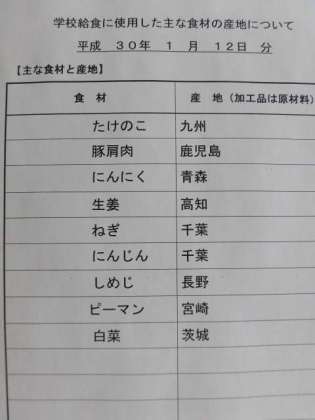 学校給食に使用した主な食材の産地について
平成 30年 1 月 12日 分
【主な食材と産地】
食 材 産 地（加工品は原材料）
たけのこ 九州
豚肩肉 鹿児島
にんにく 青森
生姜 高知
ねぎ 千葉
にんじん 千葉
しめじ 長野
ピーマン 宮崎
白菜 茨城